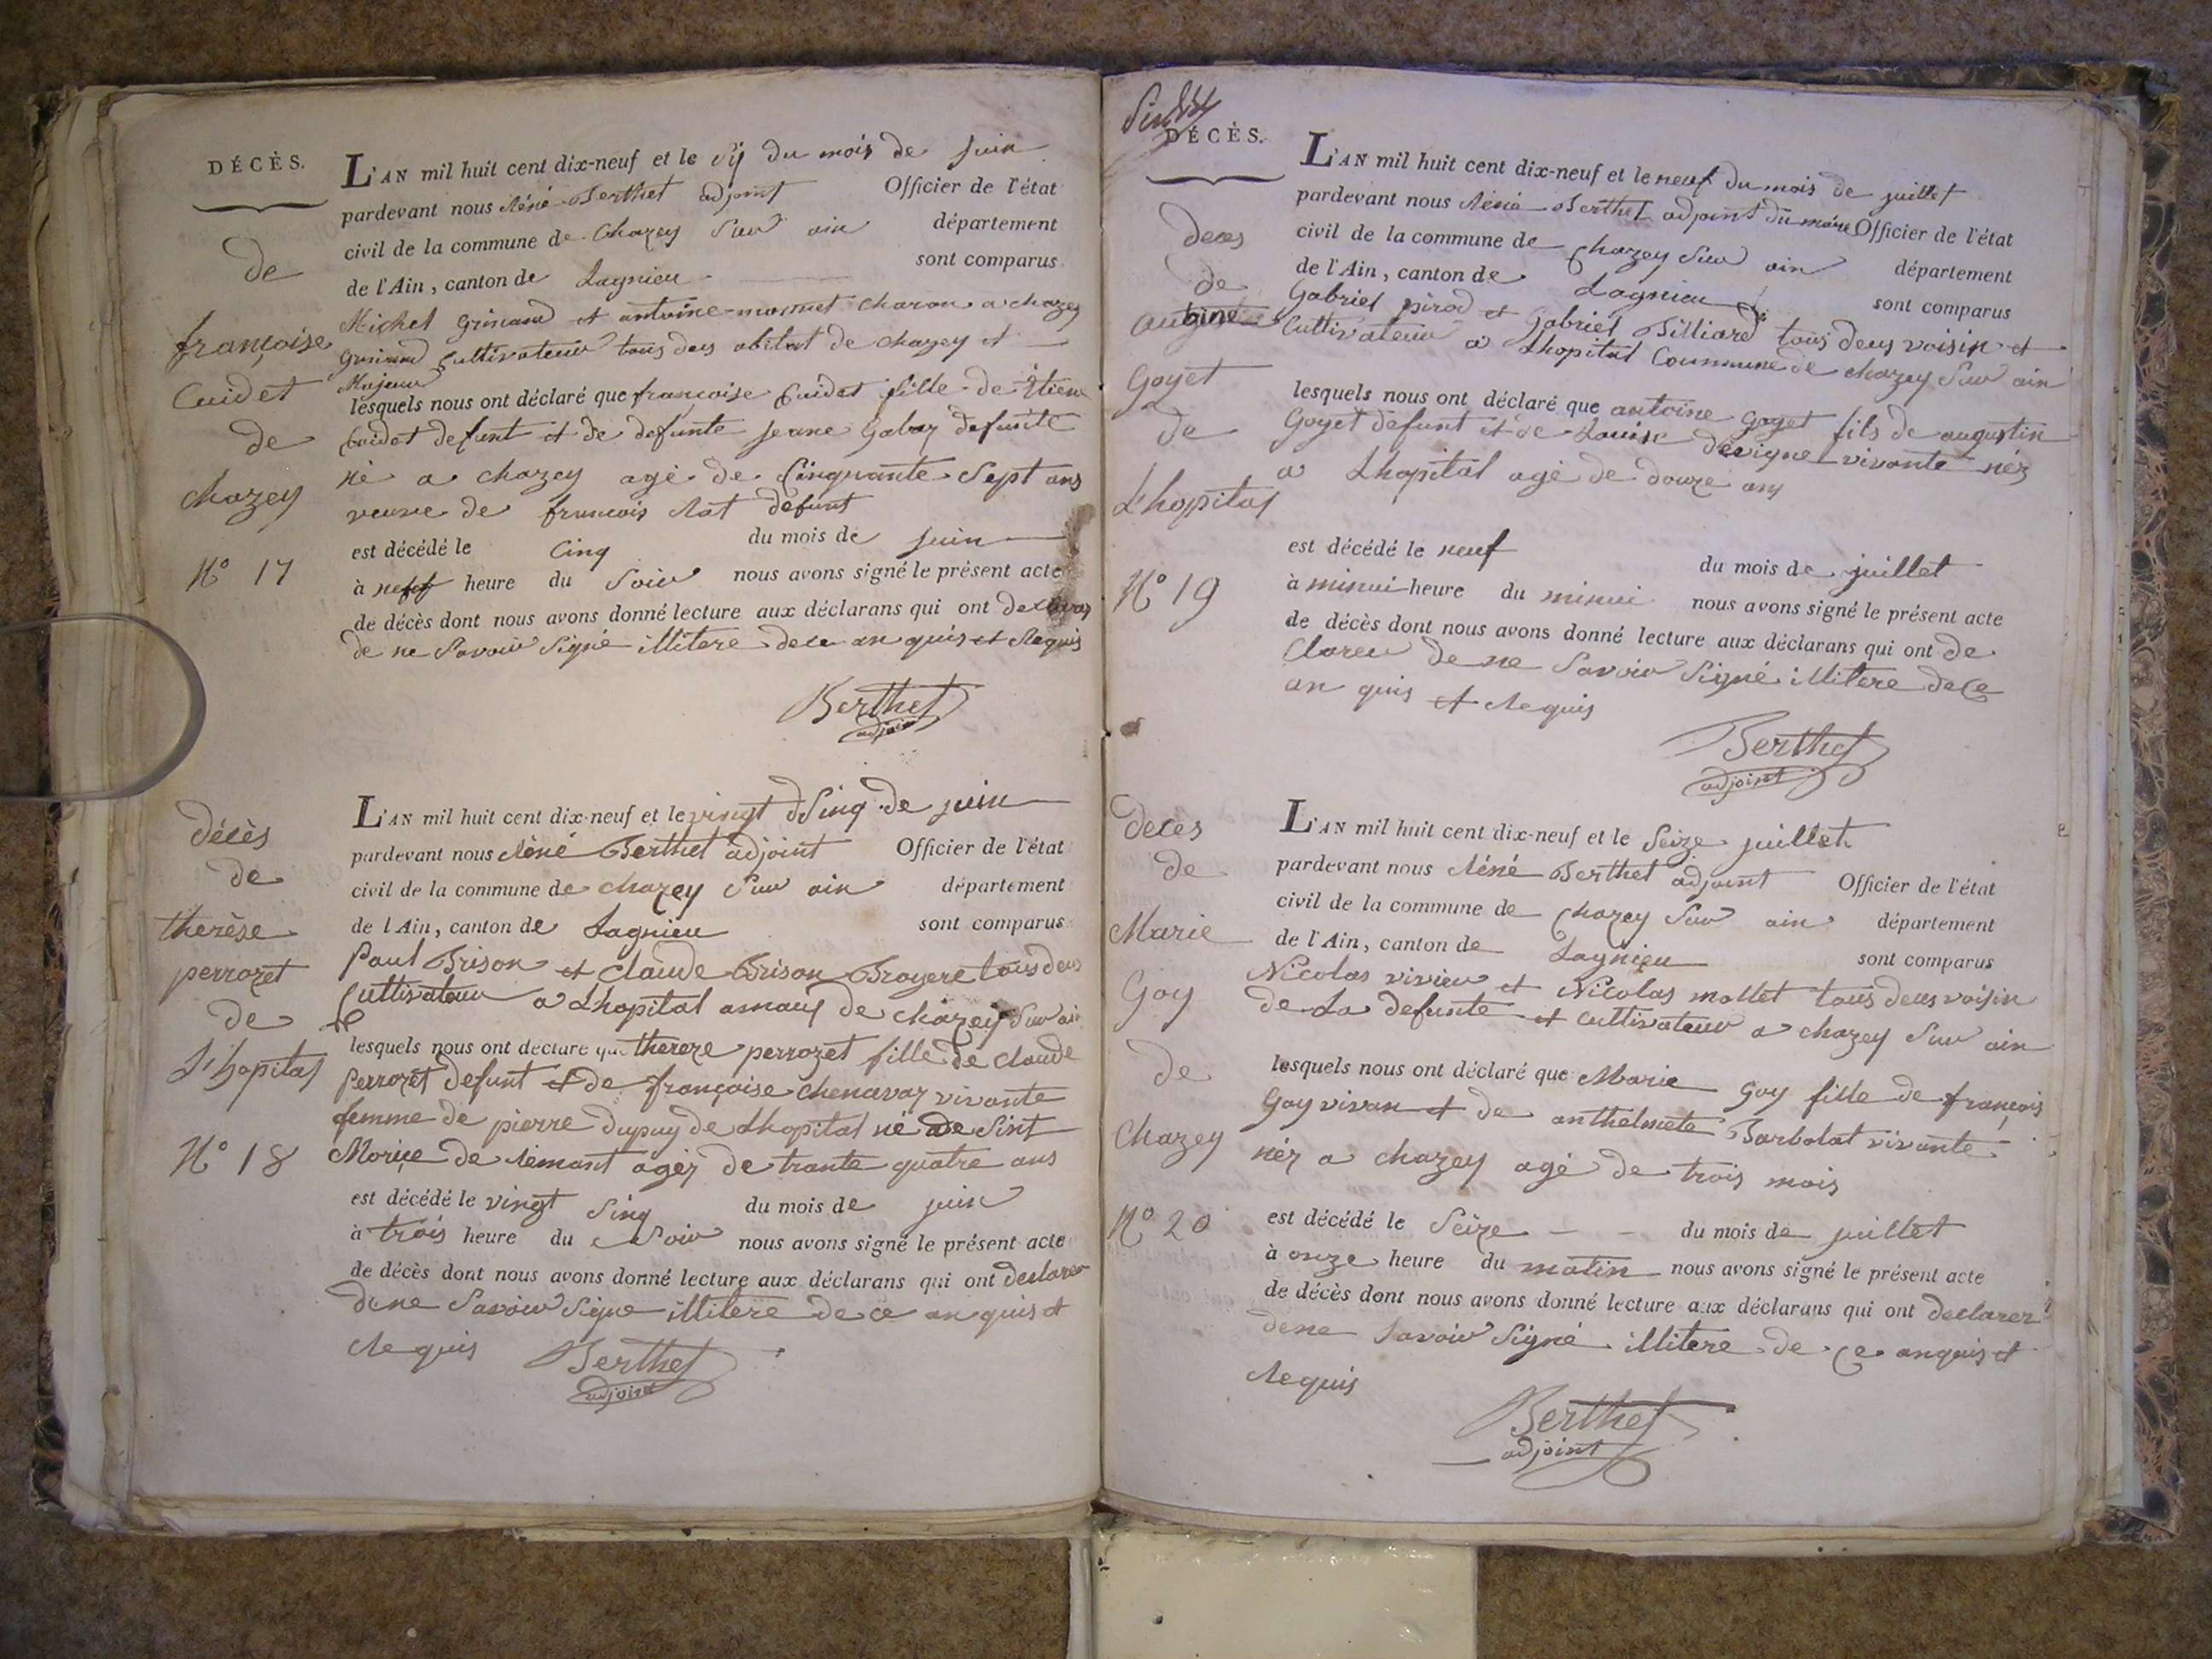 DÉCÈS.
de
françoise
Cuidet
de
chazey
N° 17
L'AN mil huit cent dix-neuf et le sij du mois de juin
pardevant nous Réné Berthet adjoint Officier de l'état
civil de la commune de Chazey Sur ain département
de l'Ain, canton de Lagnieu sont comparus
Michel Grinand et antoine charon a chazey
Grinand Cultivateur tous deus abitat de chazey et
Majeur
lesquels nous ont déclaré que françoise Cuidet fille de Etiene
Cuidet defunt et de defunte jeane defunte
né a chazey agé de Cinquante Sept ans
veuve de francois Rat defunt
est décédé le Cinq du mois de juin
à neuf heure du Soir nous avons signé le présent acte
de décès dont nous avons donné lecture aux déclarans qui ont
de ne Savoir Signé illitere dece an quis et Requis
Berthet
adjoint
décès
de
therèse
perrozet
de
L'hopital
N° 18
L'AN mil huit cent dix-neuf et le vingt Sinq de juin
pardevant nous Réné Berthet adjoint Officier de l'état
civil de la commune de chazey Sur ain département
de l'Ain, canton de Lagnieu sont comparus
Paul Brison et Claude Brison Broyere tous deus
Cultivateur a Lhopital de chazey Sur ain
lesquels nous ont déclaré que thereze perrozet fille de claude
Perrozet defunt et de françoise chenavaz vivante
femme de pierre Dupuy de Lhopital né de Sint
Morice de Rémant agéz de trante quatre ans
est décédé le vingt Sinq du mois de juin
à trois heure du Soir nous avons signé le présent acte
de décès dont nous avons donné lecture aux déclarans qui ont declarer
dene Savoir Signe illitere de ce an quis et
Requis Berthet
adjoint
DÉCÈS.
deces
de
Goyet
de
L'hopital
N° 19
L'AN mil huit cent dix-neuf et le neuf du mois de juillet
pardevant nous Réné Berthet adjoint du maire Officier de l'état
civil de la commune de Chazey Sur ain département
de l'Ain, canton de Lagnieu sont comparus
Gabriel pirod et Gabriel Billiard tous deus voisin et
Cultivateur a Lhopital Coummune de chazey Sur ain
lesquels nous ont déclaré que antoine Goyet fils de augustin
Goyet defunt et de Louise devigne vivante néz
a Lhopital agé de douze ans
est décédé le neuf du mois de juillet
à minui heure du minui nous avons signé le présent acte
de décès dont nous avons donné lecture aux déclarans qui ont de
Clareu de ne Savoir Signé illitere dece
an quis et Requis
Berthet
adjoint
deces
de
Marie
Goy
de
Chazey
N° 20
L'AN mil huit cent dix-neuf et le Seize juillet
pardevant nous Réné Berthet adjoint Officier de l'état
civil de la commune de Chazey Sur ain département
de l'Ain, canton de Lagnieu sont comparus
Nicolas vivieu et Nicolas mollet tous deus voisin
de La defunte et cultivateur a chazey Sur ain
lesquels nous ont déclaré que Marie Goy fille de françois
Goy vivan et de anthelmete Barbolat vivante
néz a chazey agé de trois mois
est décédé le Seize du mois de juillet
à onze heure du matin nous avons signé le présent acte
de décès dont nous avons donné lecture aux déclarans qui ont declarer
dene Savoir Signé illitere de ce anquis et
Requis
Berthet
adjoint